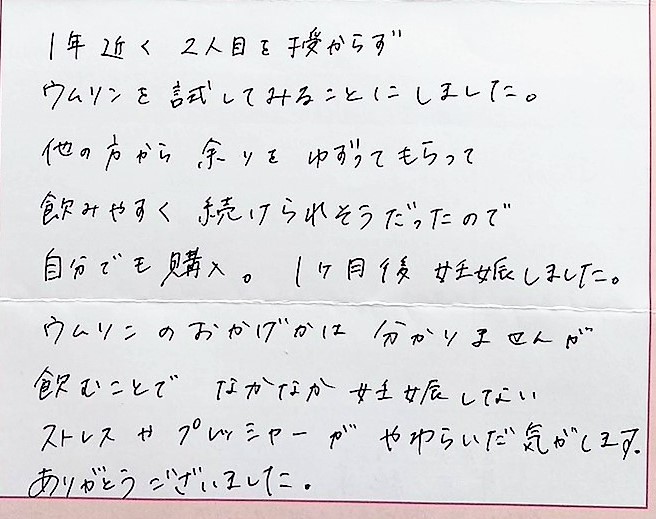 1年近く 2人目を授からず
ウムリンを試してみることにしました。
他の方から 余りを ゆずってもらって
飲みやすく 続けられそうだったので
自分でも購入。 1ヶ月後 妊娠しました。
ウムリンのおかげかは 分かりませんが
飲むことで なかなか 妊娠してない
ストレスや プレッシャーが やわらいだ気がします。
ありがとうございました。